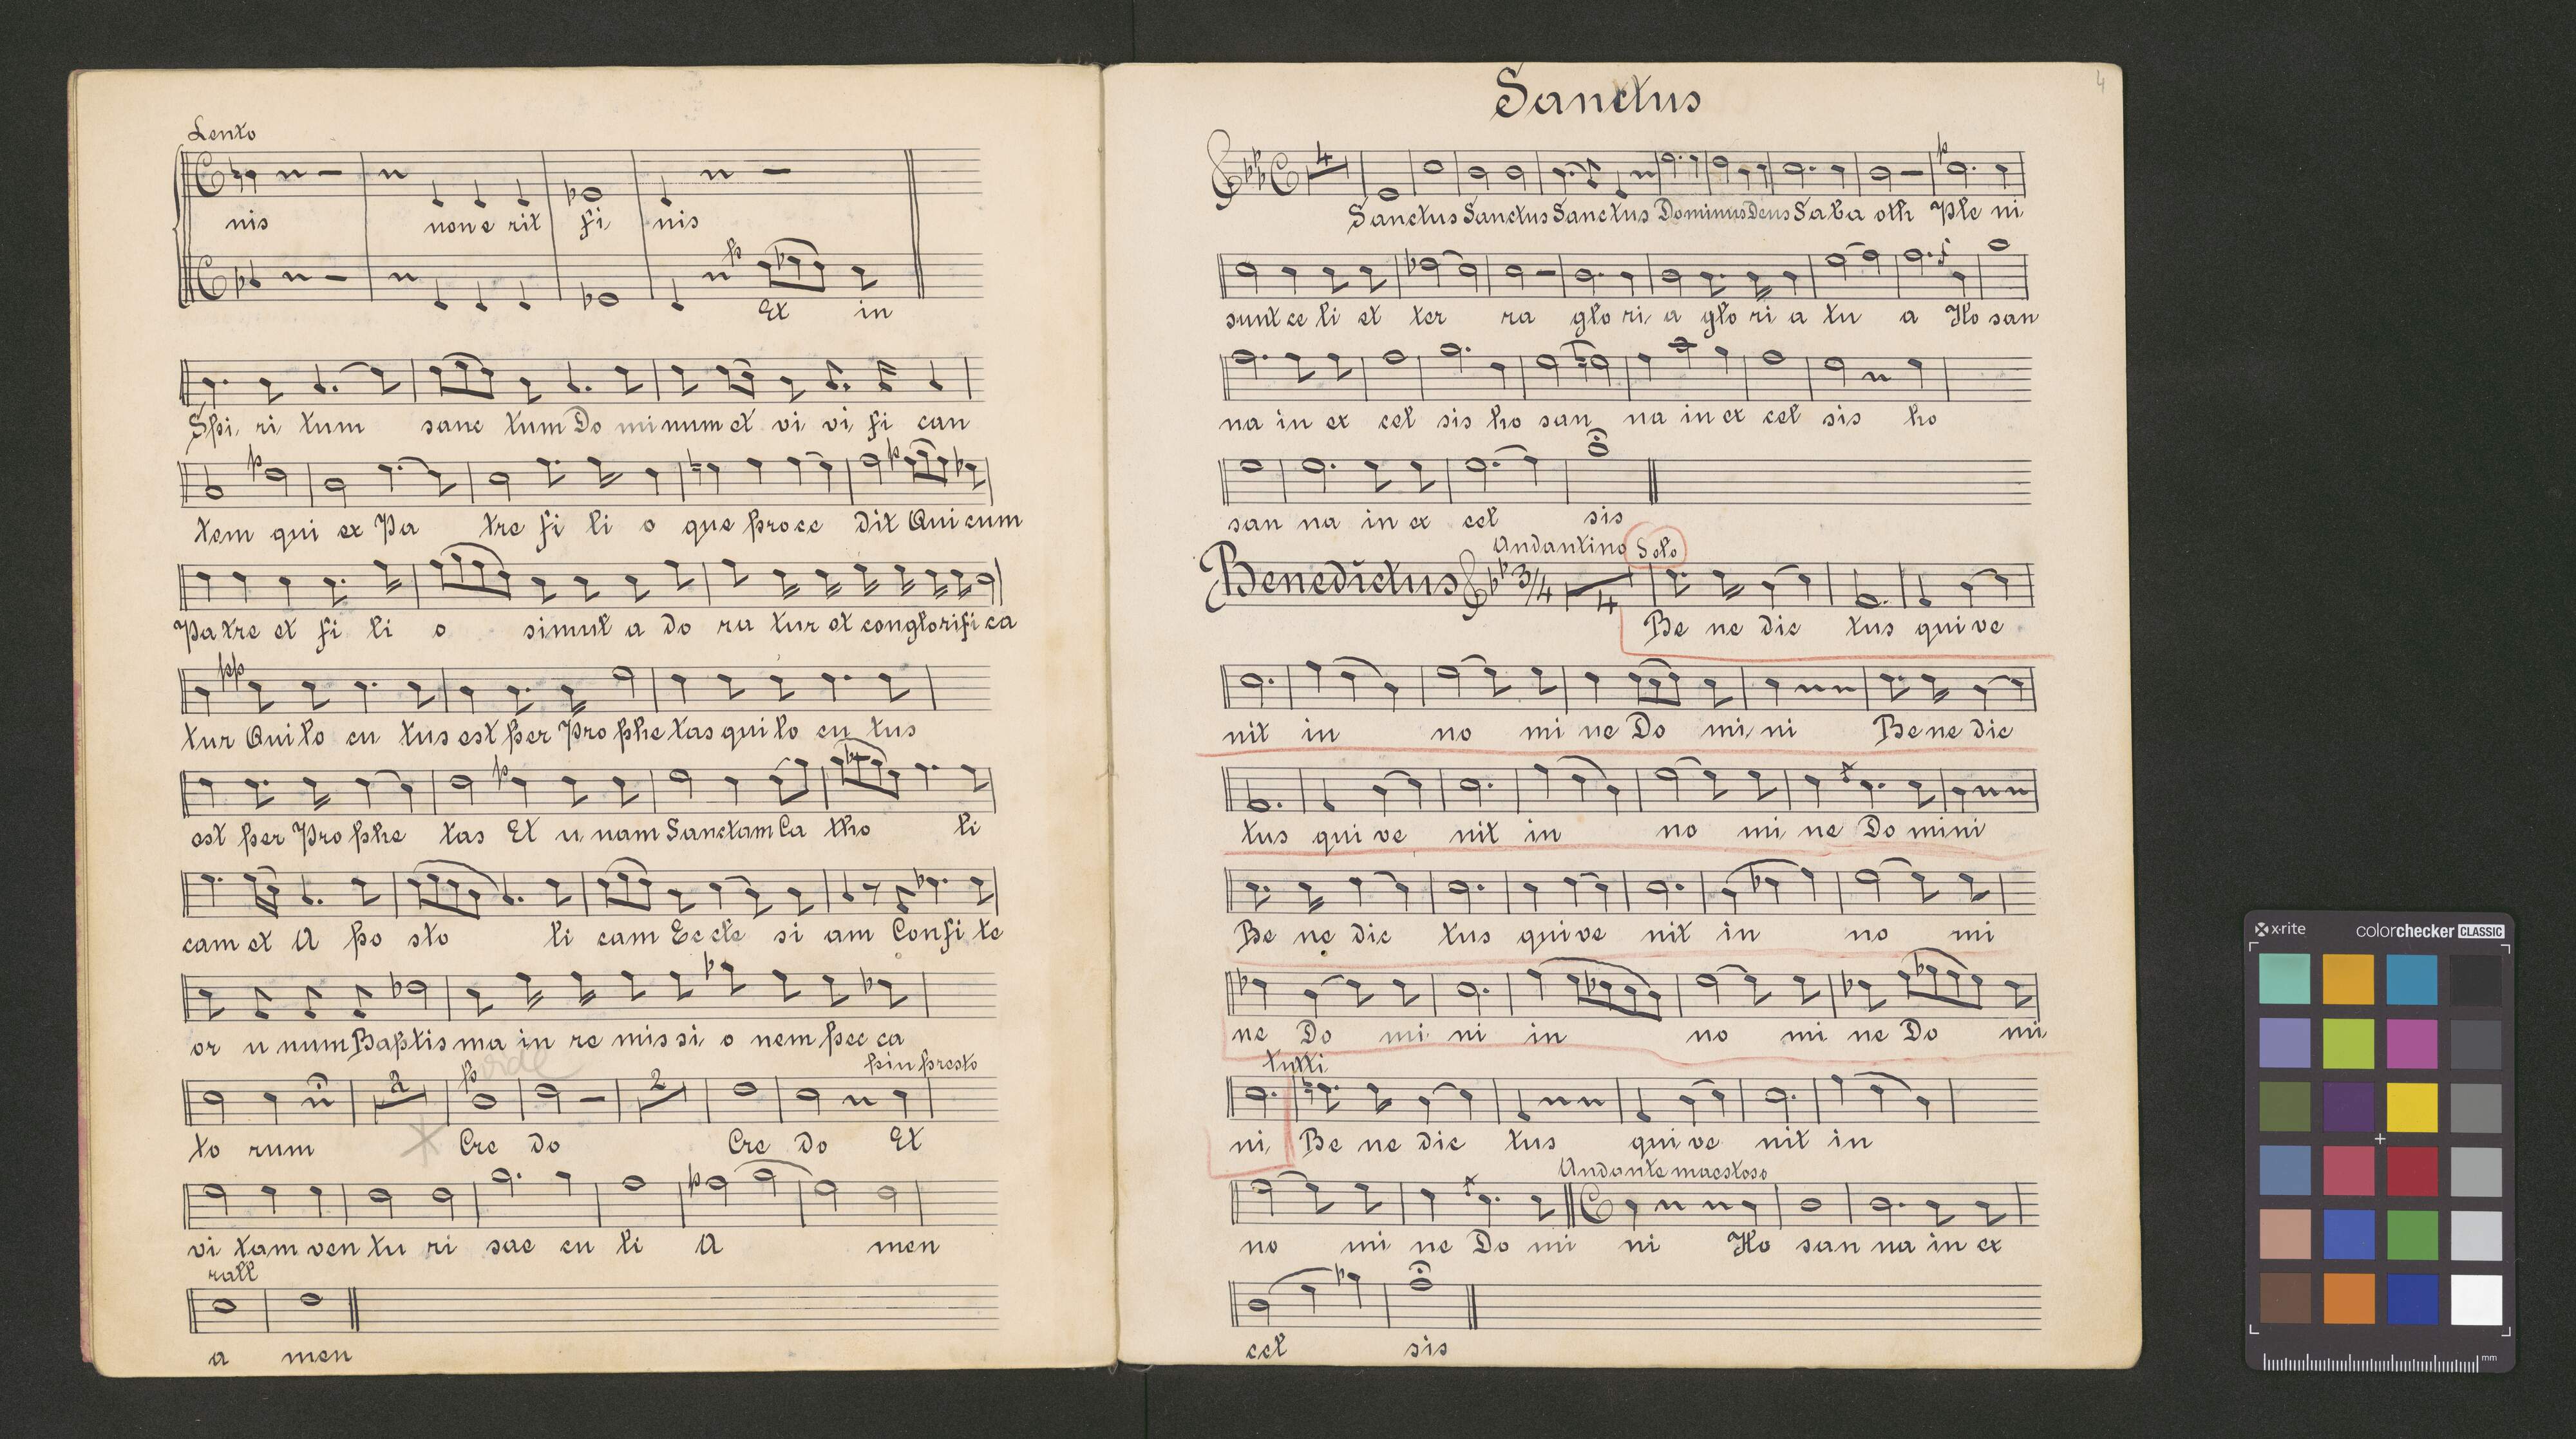 Lento
nis non e rit fi nis
p
Et in
Spi ri tum sanc tum Do mi num et vi vi fi can
p p
tem qui ex Pa tre fi li o que proce dit Qui cum
Pa tre et fi li o simul a do ra tur et conglorifi ca
pp
tur Qui lo cu tus est per Pro phe tas qui lo cu tus
p
est per Pro phe tas Et u nam Sanctam Ca tho li
cam et A po sto li cam Ec cle si am Confi te
or u num Baptis ma in re mis si o nem pec ca
piu presto
2 p 2
to rum Cre do Cre do Et
p
vi tam ven tu ri sae cu li A men
rall
a men
4
Sanctus
4 p
Sanctus Sanctus Sanctus Dominus Deus Saba oth Ple ni
sunt ce li et ter ra glo ri a glo ri a tu a Ho san
na in ex cel sis ho san na in ex cel sis ho
san na in ex cel sis
Andantino Solo
Benedictus 3/4 4
Be ne dic tus qui ve
nit in no mi ne Do mi ni Be ne dic
tus qui ve nit in no mi ne Do mini
Be ne dic tus qui ve nit in no mi
ne Do mi ni in no mi ne Do mi
tutti
ni Be ne dic tus qui ve nit in
Andante maestoso
no mi ne Do mi ni Ho san na in ex
cel sis
x-rite colorchecker CLASSIC
mm